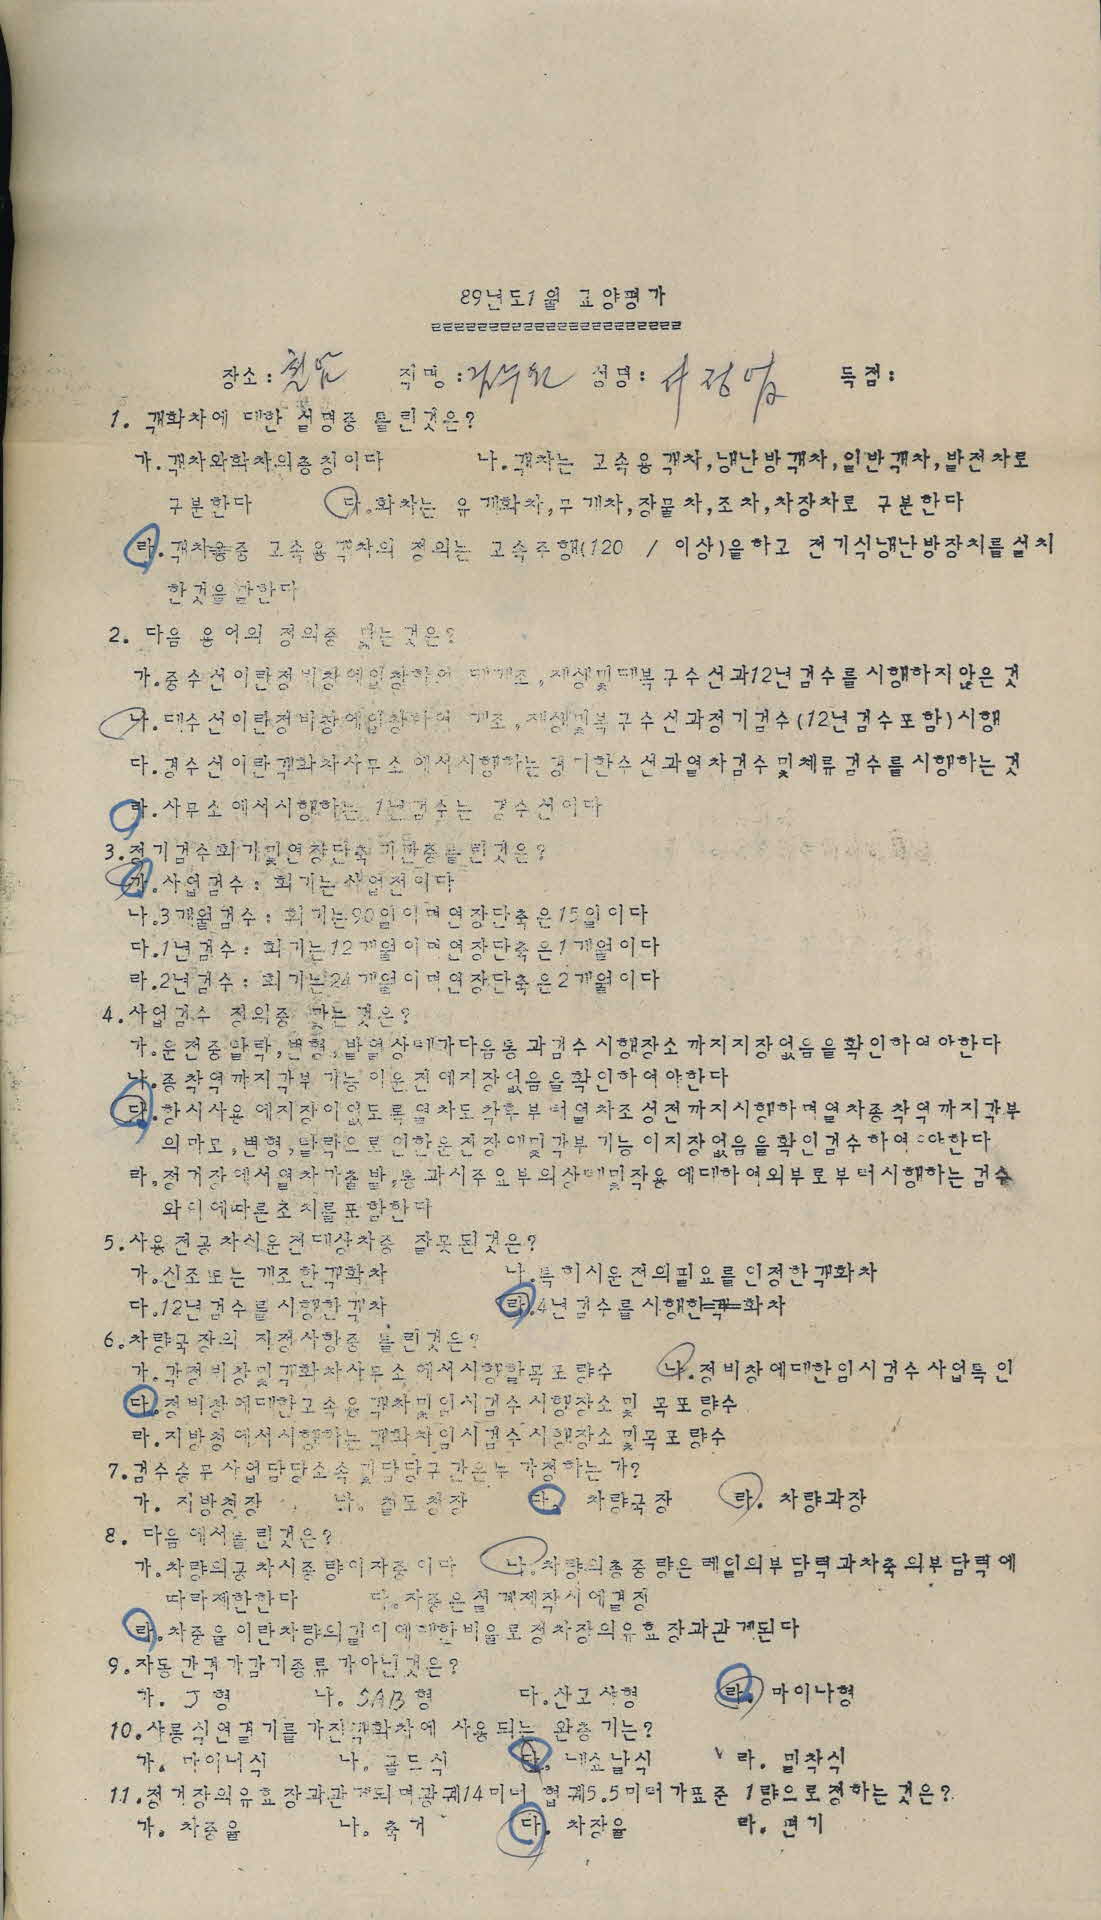 89년도1월 교양평가
장소: 철암 직명: 검수원 성명: 서정업 득점:
1. 객화차에 대한 설명중 틀린것은?
가.객차와화차의총칭이다 나.객차는 고속용객차,냉난방객차,일반객차,발전차로
구분한다 다.화차는 유개화차,무개차,장물차,조차,차장차로 구분한다
라.객차중 고속용객차의 정의는 고속주행(120 / 이상)을하고 전기식냉난방장치를설치
한것을말한다
2. 다음 용어의 정의중 맞는것은?
가.중수선이란정비창에입창하여 대개조,재생및대복구수선과12년검수를시행하지않은것
나.대수선이란정비창에입창하여 개조,재생및복구수선과정기검수(12년검수포함)시행
다.경수선이란객화차사무소에서시행하는경미한수선과열차검수및체류검수를시행하는것
라.사무소에서시행하는 1년검수는 경수선이다
3.정기검수회기및연장단축기한중틀린것은?
가.사업검수: 회기는사업전이다
나.3개월검수: 회기는90일이며연장단축은15일이다
다.1년검수: 회기는12개월이며연장단축은1개월이다
라.2년검수: 회기는24개월이며연장단축은2개월이다
4.사업검수 정의중 맞는것은?
가.운전중탈락,변형,발열상태가다음통과검수시행장소까지지장없음을확인하여야한다
나.종착역까지각부기능이운전에지장없음을확인하여야한다
다.항시사용에지장이없도록열차도착후부터열차조성전까지시행하며열차종착역까지각부
의마모,변형,탈락으로인한운전장애및각부기능이지장없음을확인검수하여야한다
라.정거장에서열차가출발,통과시주요부의상태및작용에대하여외부로부터시행하는검수
와이에따른조치를포함한다
5.사용전공차시운전대상차중 잘못된것은?
가.신조또는개조한객화차 나.특히시운전의필요를인정한객화차
다.12년검수를시행한객차 라.4년검수를시행한객화차
6.차량국장의 지정사항중 틀린것은?
가.각정비창및객화차사무소에서시행할목표량수 나.정비창에대한임시검수사업특인
다.정비창에대한고속용객차및임시검수시행장소및 목표량수
라.지방청에서시행하는객화차임시검수시행장소및목표량수
7.검수승무사업담당소속및담당구간은누가정하는가?
가. 지방청장 나. 철도청장 다. 차량국장 라. 차량과장
8. 다음에서틀린것은?
가.차량의공차시중량이자중이다 나.차량의총중량은레일의부담력과차축의부담력에
따라제한한다 다.자중은설계제작시에결정
라.차중율이란차량의길이에대한비율로정차장의유효장과관계된다
9.자동간격가감기종류가아닌것은?
가. J형 나. SAB형 다.산고샤형 라. 마이나형
10.샤론식연결기를가진객화차에 사용되는 완충기는?
가. 마이너식 나. 골드식 다. 내쇼날식 라. 밀착식
11.정거장의유효장과관계되며광궤14미터 협궤5.5미터가표준 1량으로정하는것은?
가. 차중율 나. 축거 다. 차장율 라. 편기